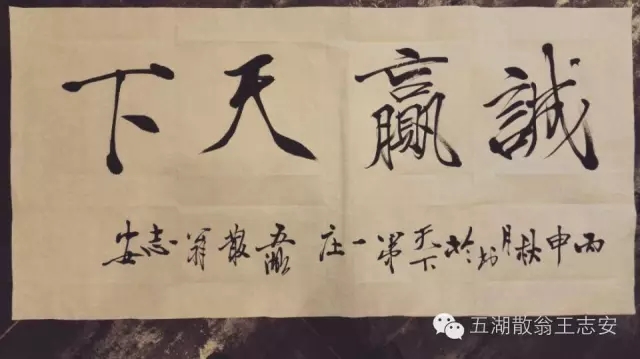 誠贏天下
丙申秋月书於天下第一庄 五湖散翁志安
五湖散翁王志安